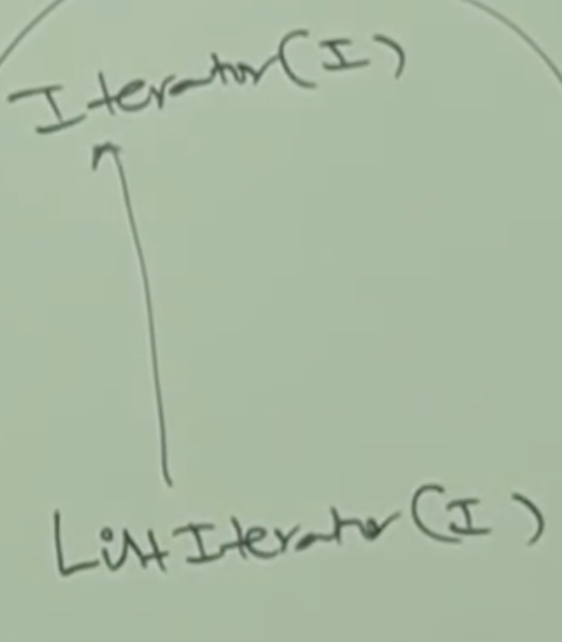 Iterator(I)
ListIterator(I)